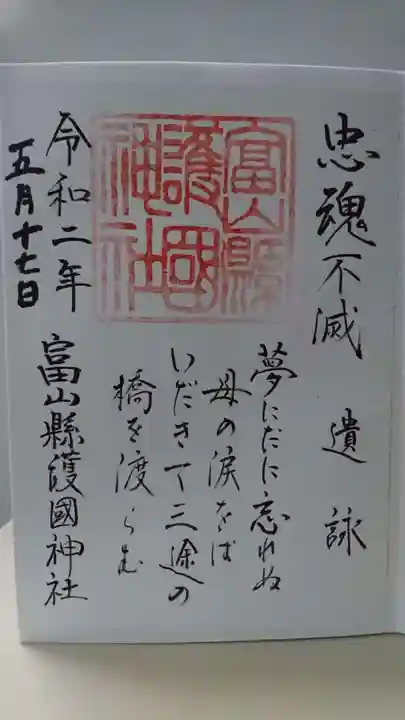 忠魂不滅 遺詠
夢にだに忘れぬ
母の涙をば
いだきて三途の
橋を渡らむ
富山縣
護國
神社
令和二年
五月十七日
富山縣護國神社